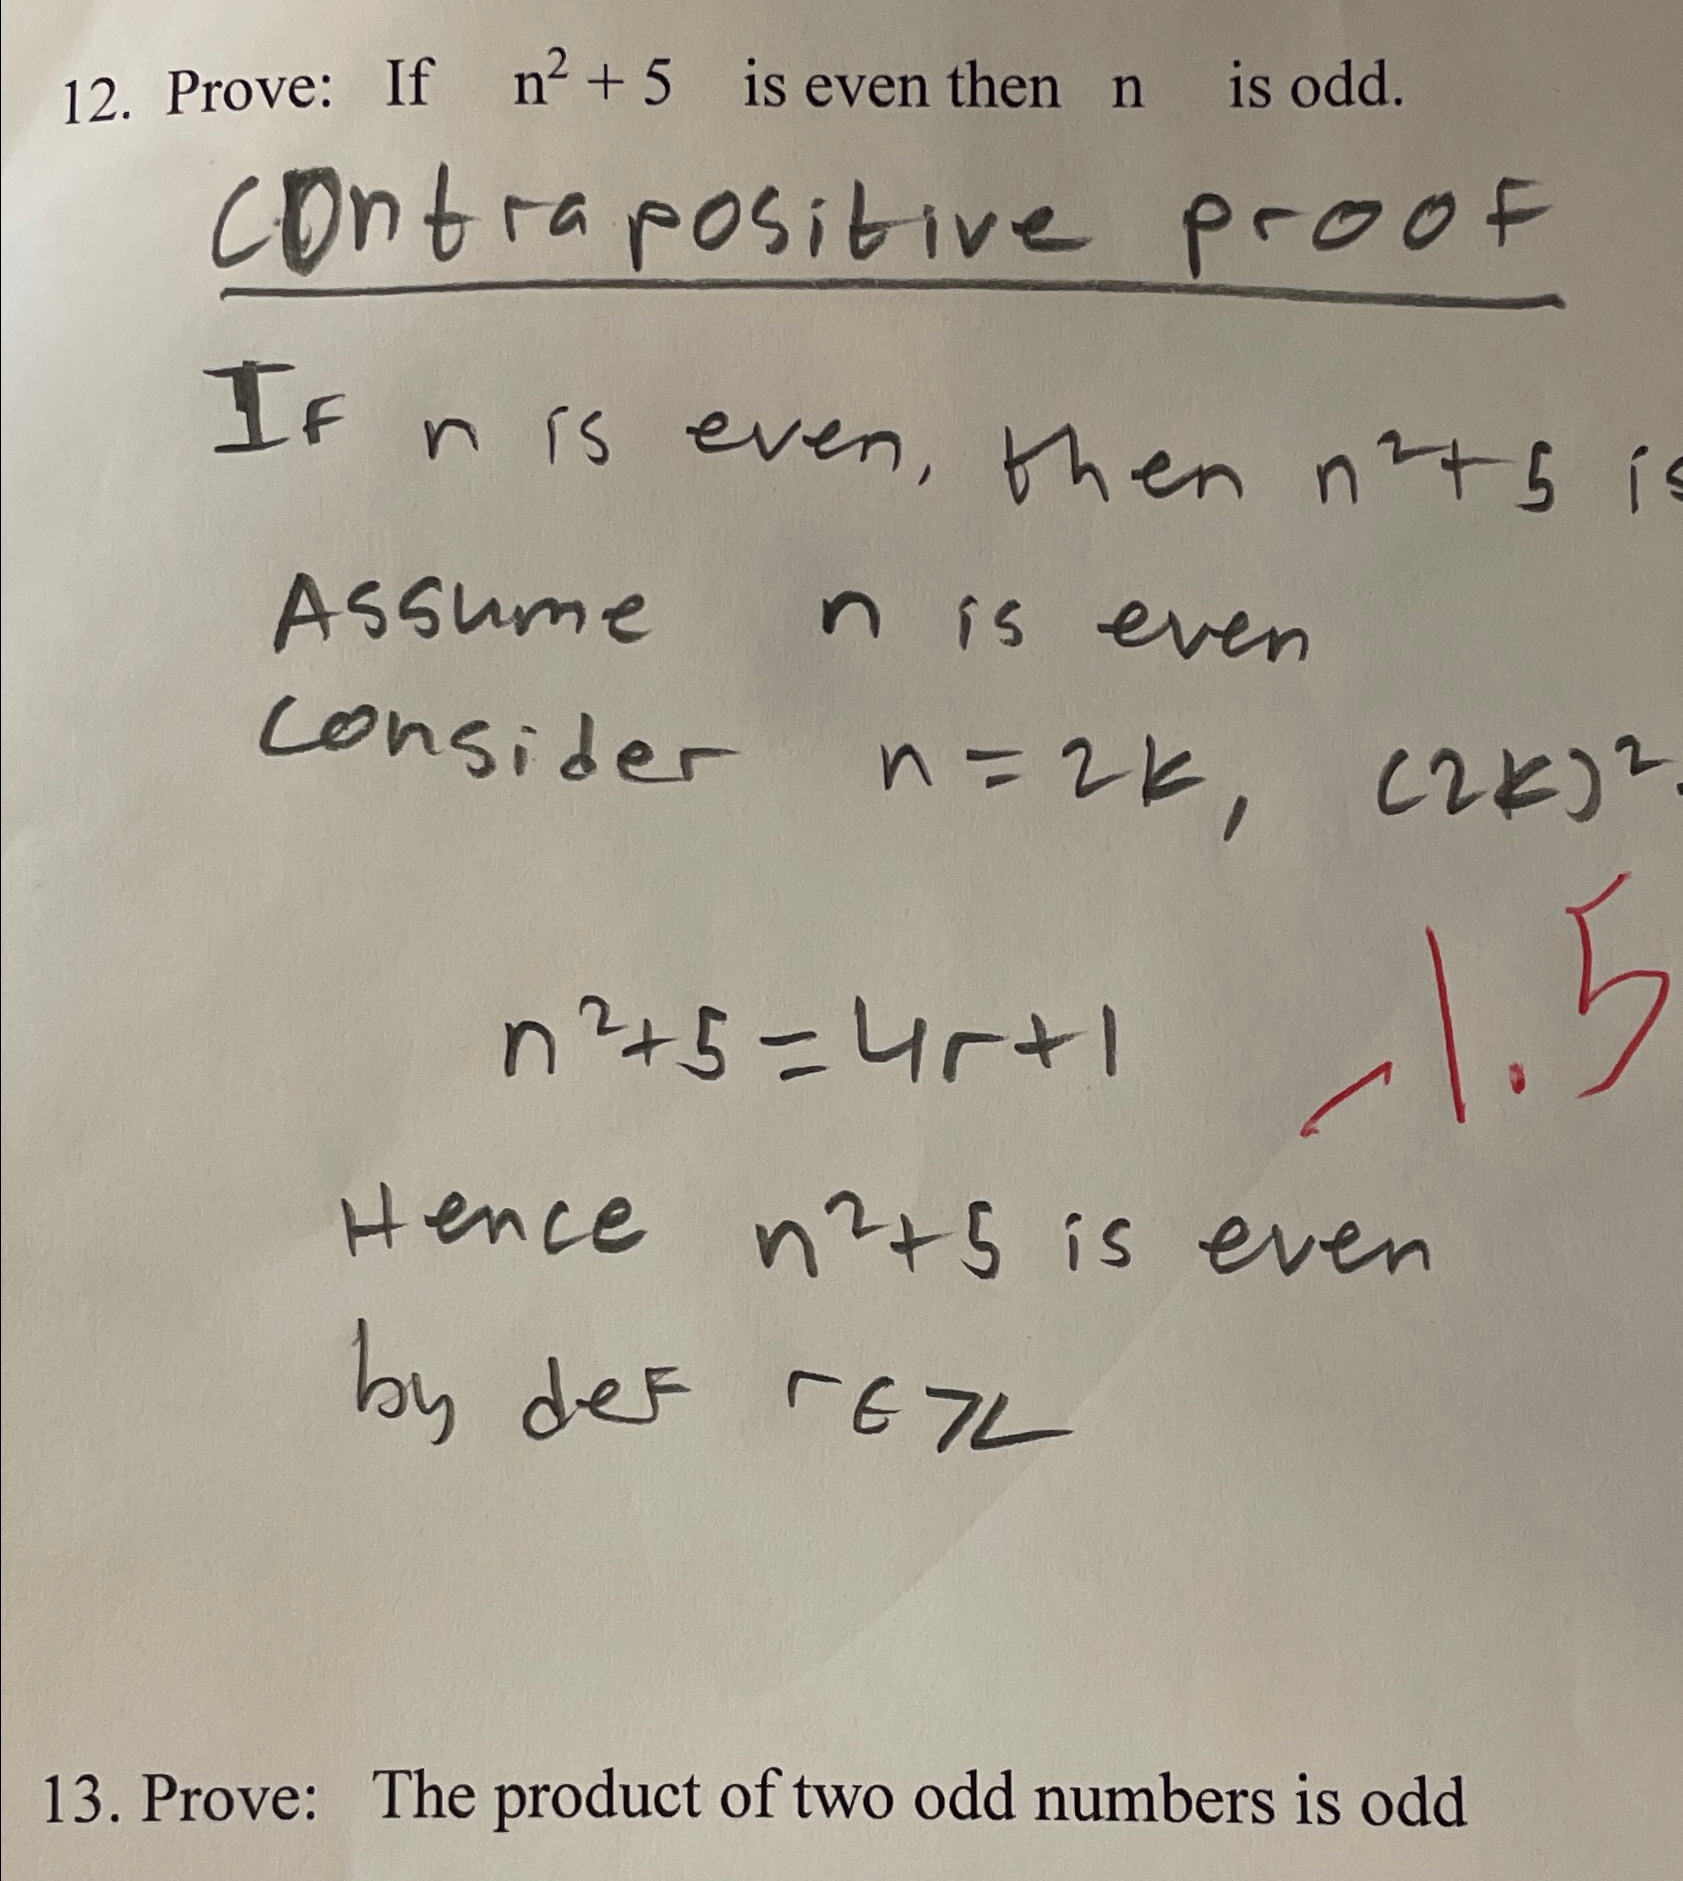 12. Prove: If n² + 5 is even then n is odd.
contrapositive proof
If n is even, then n²+5 is
Assume n is even
consider n=2k, (2k)²
-1.5
n²+5=4r+1
Hence n²+5 is even
by def r∈ℤ
13. Prove: The product of two odd numbers is odd